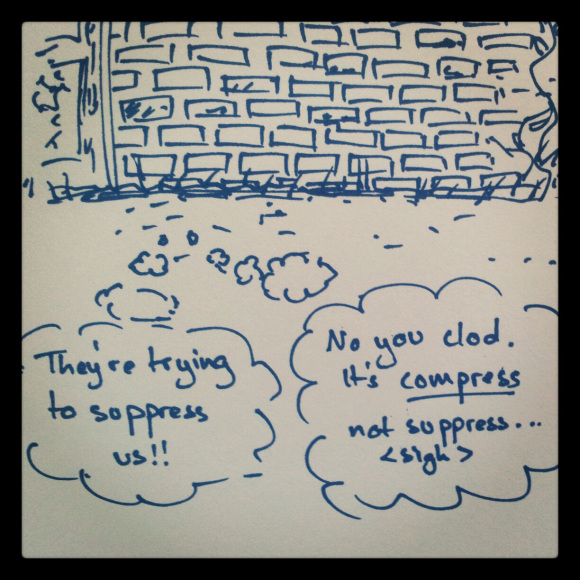 They're trying
to suppress
us!!
No you clod.
It's compress
not suppress...
<sigh>